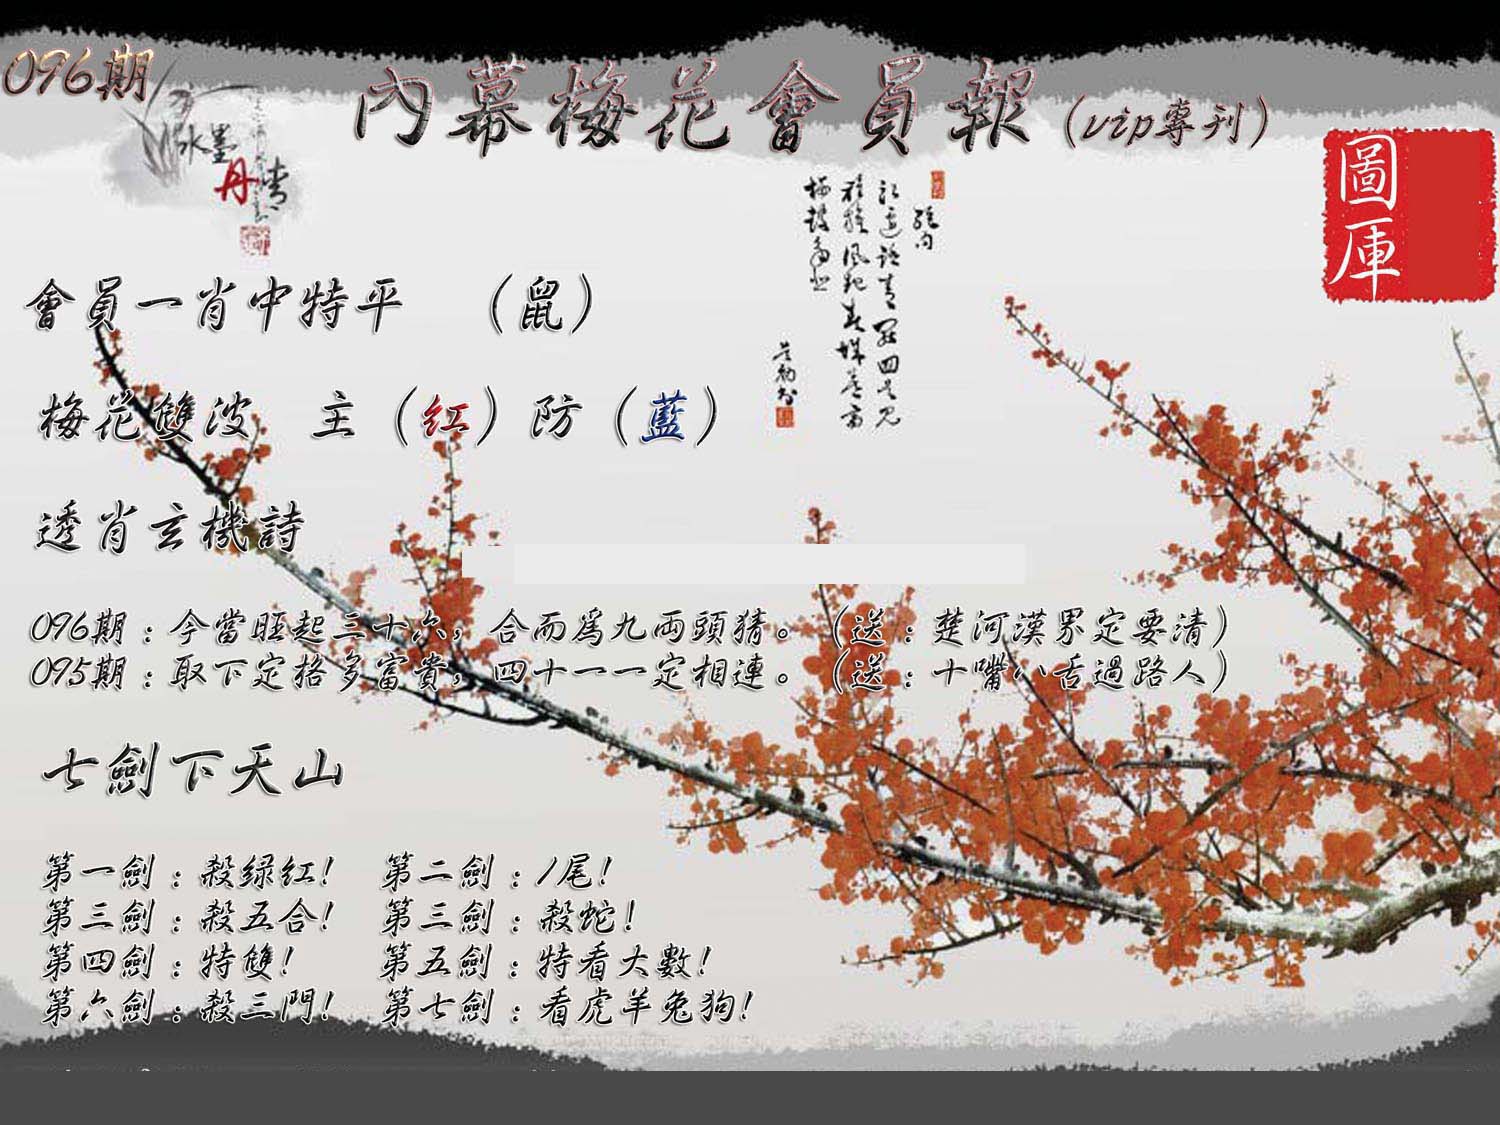 096期
內幕梅花會員報（vip專刊）
水墨
丹青
圖庫
會員一肖中特平 （鼠）
梅花雙波 主（红）防（藍）
透肖玄機詩
096期：今當旺起三十六，合而爲九両頭猜。（送：楚河漢界定要清）
095期：取下定格多富貴，四十一一定相連。（送：十嘴八舌過路人）
七劍下天山
第一劍：殺绿红! 第二劍：1尾!
第三劍：殺五合! 第三劍：殺蛇!
第四劍：特雙! 第五劍：特看大數!
第六劍：殺三門! 第七劍：看虎羊兔狗!